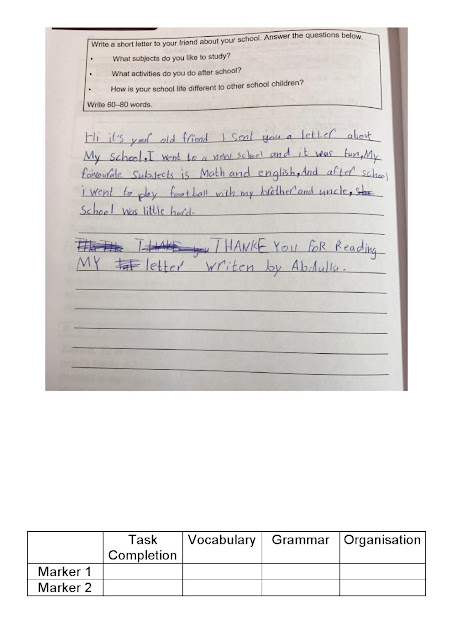 Write a short letter to your friend about your school. Answer the questions below.
• What subjects do you like to study?
• What activities do you do after school?
• How is your school life different to other school children?
Write 60–80 words.
Hi it's your old friend I sent you a letter about
My school, I went to a new school and it was fun, My
favourate Subjects is Math and english, And after school
i went to play football with my brother and uncle,
School was little hard.
THANKE YOU FOR Reading
MY letter writen by Abdulla.
Task Completion Vocabulary Grammar Organisation
Marker 1
Marker 2